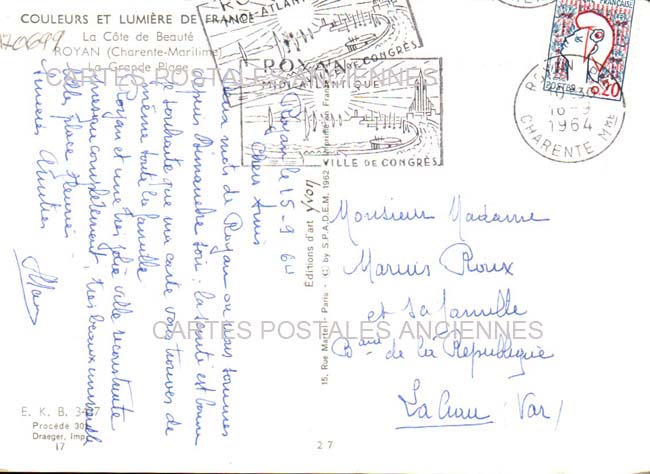 COULEURS ET LUMIÈRE DE FRANCE
La Côte de Beauté
ROYAN (Charente-Maritime)
La Grande Plage
170699
ROYAN
MIDI-ATLANTIQUE
VILLE DE CONGRÈS
ROYAN
MIDI-ATLANTIQUE
VILLE DE CONGRÈS
FRANÇAISE
0,20
16-9
1964
CHARENTE Mme
CARTES POSTALES ANCIENNES
Royan le 15-9 64
Chers Amis
mots de Royan ou nous sommes
depuis Dimanche soir. la santé est bonne
je souhaite que ma carte vous trouves de
même toute la famille
Royan et une très jolie ville reconstruite
presque complètement, très beaux immeuble
Belle place fleurie
Sincères Amitiés
Éditions d'art Yvon
15, Rue Martel - Paris - (C) by S.P.A.D.E.M. 1962 Imprimé en France
Monsieur Madame
Marius Roux
et sa famille
Bard de la République
La Crau (Var)
CARTES POSTALES ANCIENNES
E. K. B. 3417
Procédé 302
Draeger, Imp.
17
27